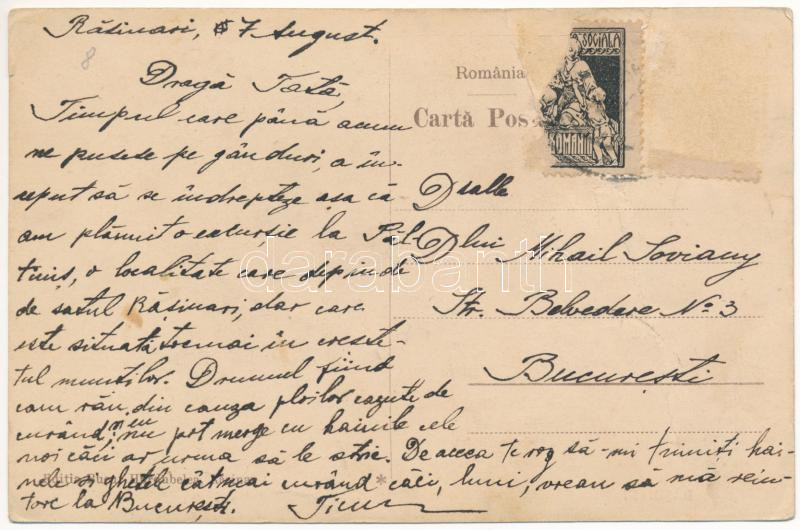 Rășinari, 7 August.
8
Dragă Tată,
Timpul care până acum
ne pusese pe gânduri, a în-
ceput să se îndrepteze așa că
am plănuit o excursie la Păl-
tiniș, o localitate care depinde
de satul Rășinari, dar care
este situată tocmai în creste-
tul munților. Drumul fiind
cam rău din cauza ploilor cazute de
curând, eu nu pot merge cu hainile cele
noi căci ar urma să le stric. De aceea te rog să-mi trimiți hai-
nele și ghetele cât mai curând căci, luni, vreau să mă rein-
torc la București.
România
Cartă Pos
SOCIALA
ROMANIA
Dsale
Dlui Mihail Soviany
Str. Belvedere No 3
București
Editia
*
darabanth